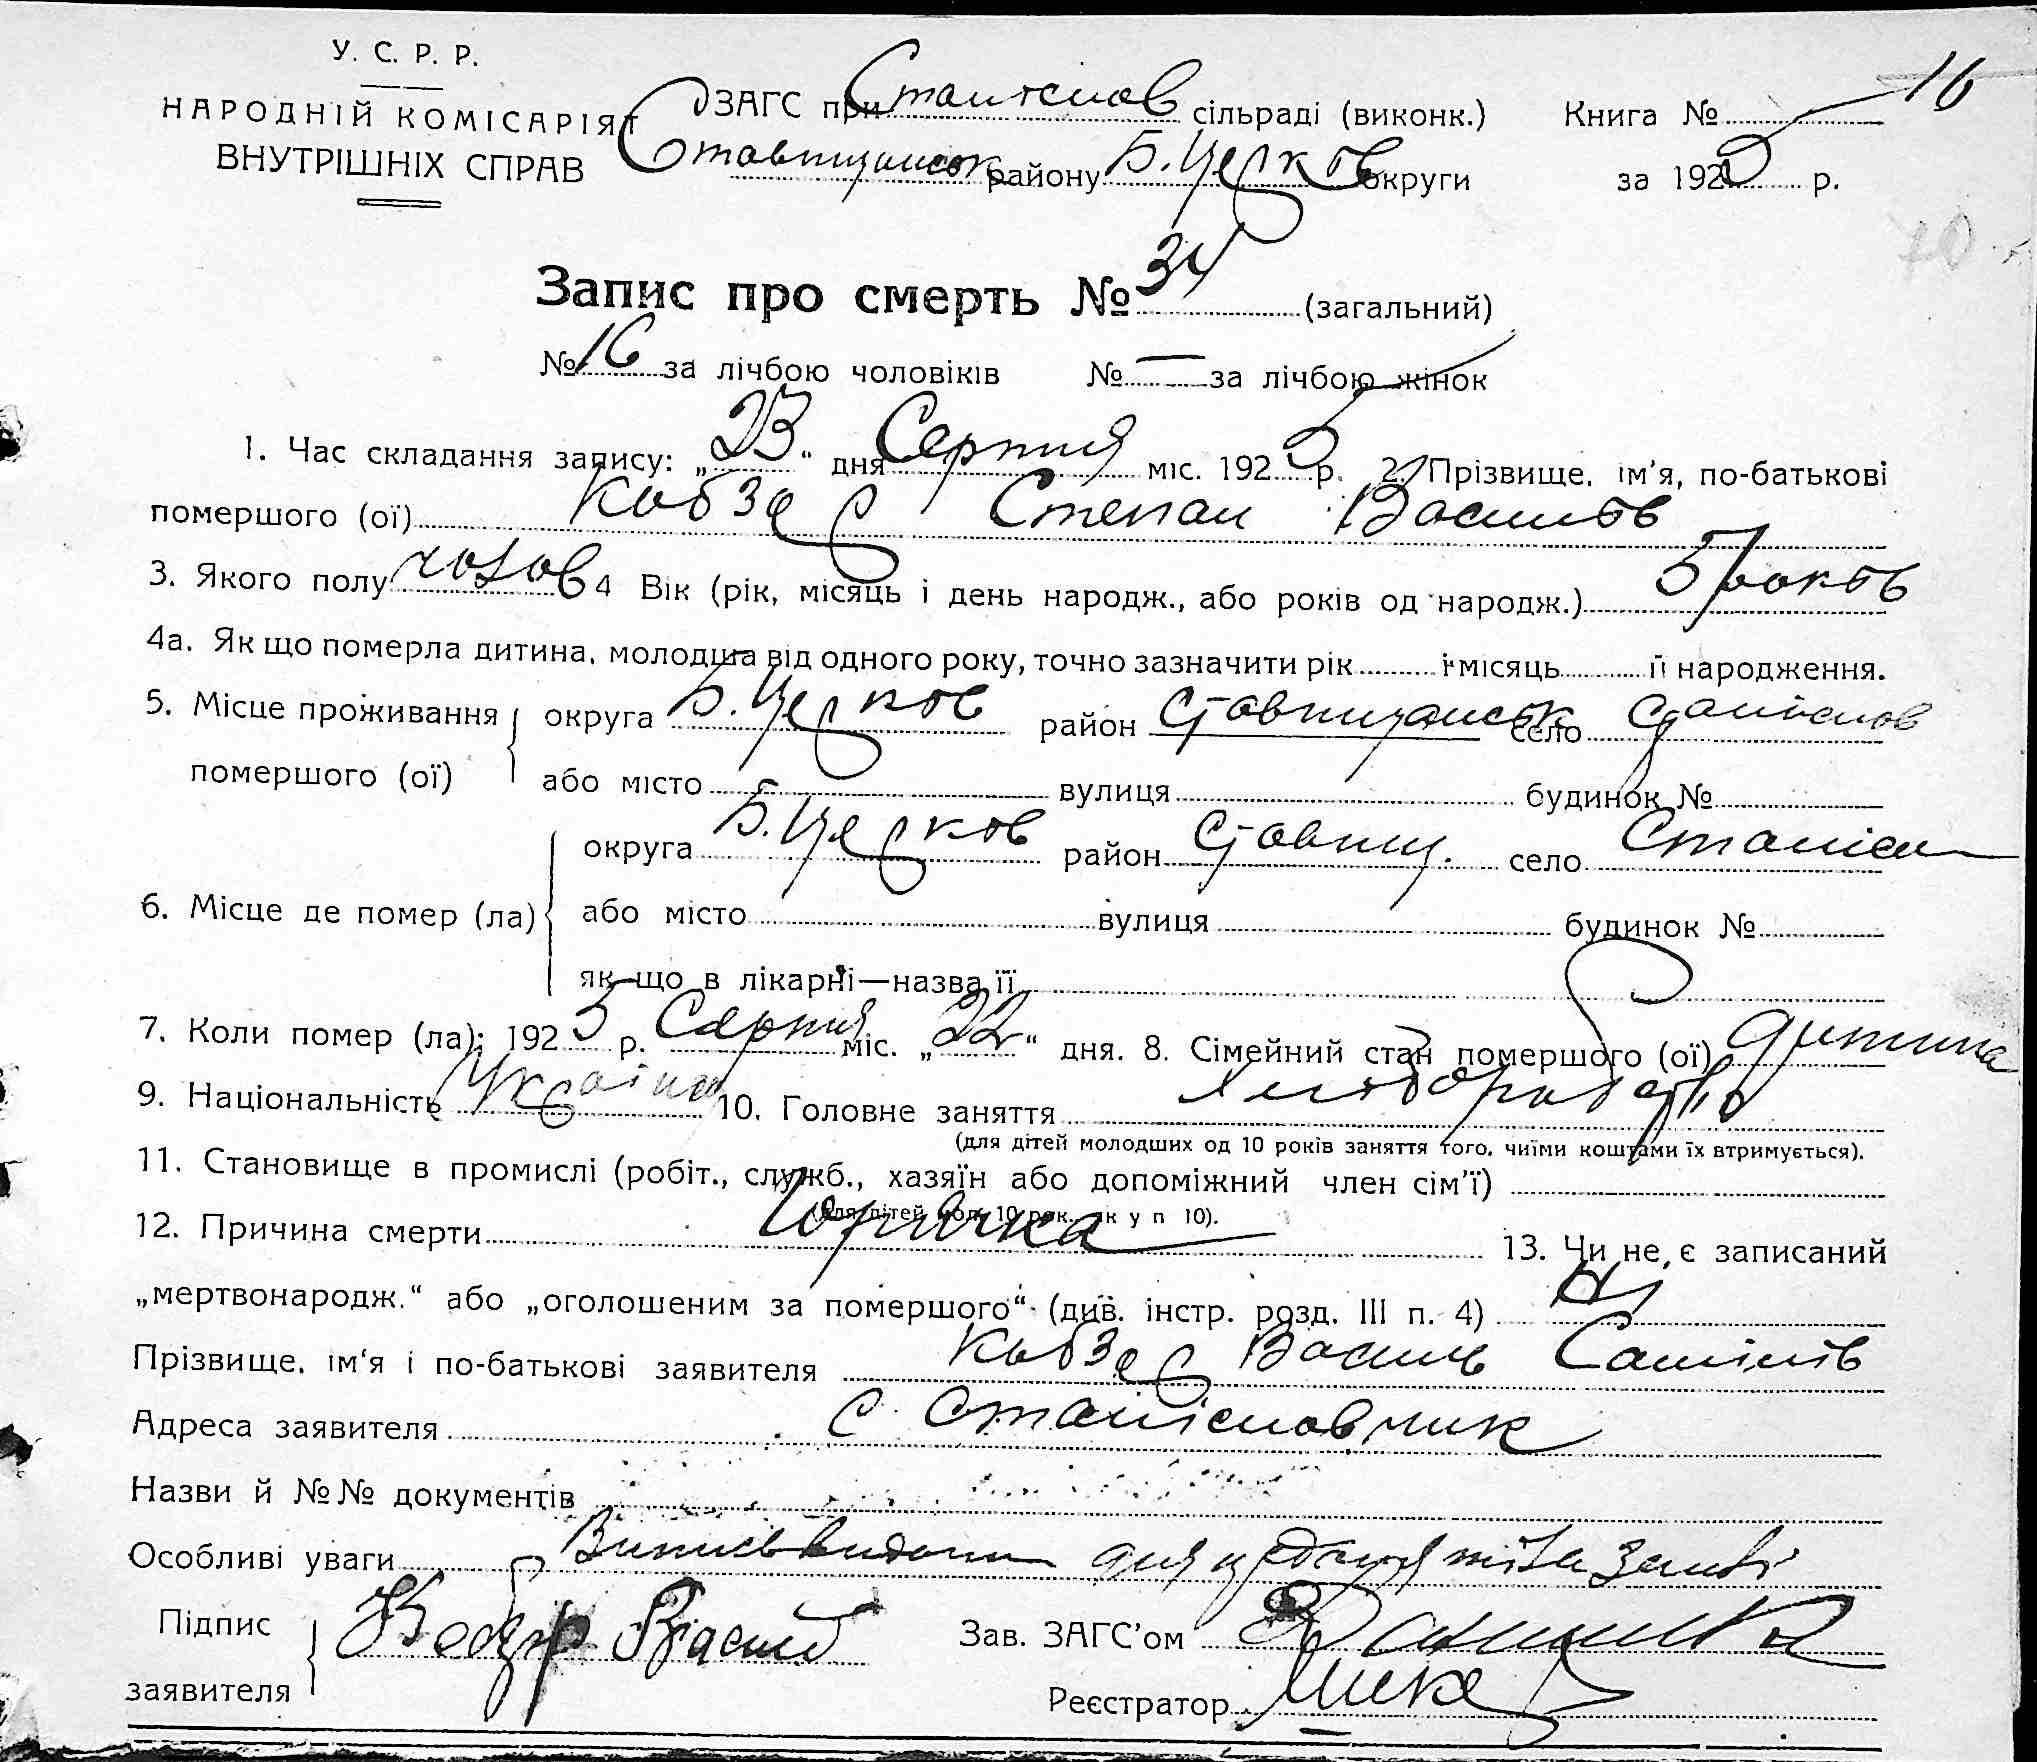 У. С. Р. Р.
НАРОДНІЙ КОМІСАРІЯТ
ВНУТРІШНІХ СПРАВ
ЗАГС при Станіслав сільраді (виконк.) Книга № 16
Ставищанськ району Б. Церков округи за 1925 р.
Запис про смерть № 34 (загальний)
№ 16 за лічбою чоловіків № — за лічбою жінок
1. Час складання запису: „23“ дня Серпня міс. 1925 р. 2. Прізвище, ім'я, по-батькові
помершого (ої) Кобза Степан Васильів
3. Якого полу чолов 4 Вік (рік, місяць і день народж., або років од народж.) 5 років
4а. Як що померла дитина, молодша від одного року, точно зазначити рік і місяць її народження.
5. Місце проживання помершого (ої) округа Б. Церков район Ставищанськ село Станіслов
або місто вулиця будинок №
6. Місце де помер (ла) округа Б. Церков район Ставищ. село Станісл
або місто вулиця будинок №
як що в лікарні—назва її
7. Коли помер (ла): 1925 р. Серпня міс. „22“ дня. 8. Сімейний стан помершого (ої) дитина
9. Національність Україн 10. Головне заняття хліборобство
(для дітей молодших од 10 років заняття того, чиїми коштами їх втримується).
11. Становище в промислі (робіт., служб., хазяїн або допоміжний член сім'ї)
(для дітей мол. 10 рок. як у п 10).
12. Причина смерти Горячка 13. Чи не є записаний
„мертвонародж.“ або „оголошеним за помершого“ (див. інстр. розд. III п. 4) Ні
Прізвище, ім'я і по-батькові заявителя Кобза Василь
Адреса заявителя с Станіславчик
Назви й №№ документів
Особливі уваги Випись видана для землі
Підпис заявителя Васил Зав. ЗАГС'ом
Реєстратор